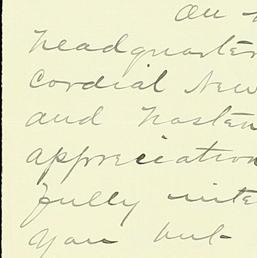 On
headquarter
Cordial New
and hasten
appreciation
fully inte
you but